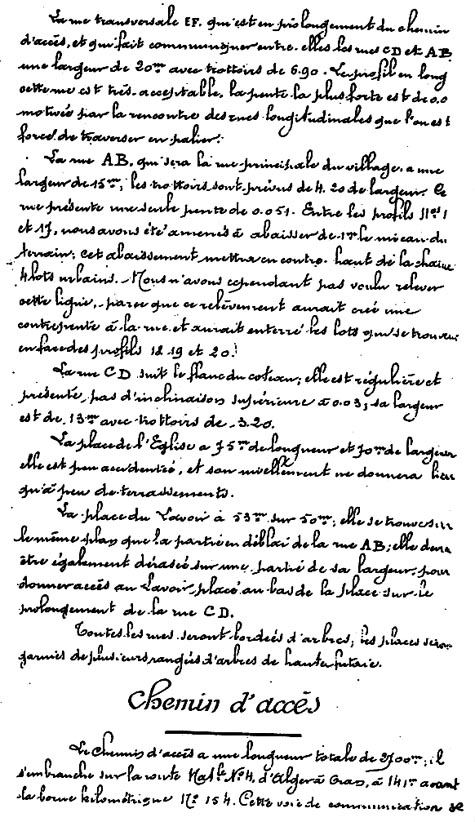 La rue transversale EF, qui est en prolongement du chemin
d'accès, et qui fait communiquer entre elles les rues CD et AB
une largeur de 20m avec trottoirs de 6.90. Le profil en long
cette rue est très acceptable, la pente la plus forte est de 0.0
motivée par la rencontre des rues longitudinales que l'on est
forcé de traverser en palier.
La rue AB, qui sera la rue principale du village, a une
largeur de 15m, les trottoirs sont prévus de 4.20 de largeur. Ce
rue présente une seule pente de 0.051. Entre les profils Nos 1
et 17, nous avons été amenés à abaisser de 1m le niveau du
terrain; cet abaissement mettra en contre-haut de la chaussée
4 lots urbains. Nous n'avons cependant pas voulu relever
cette ligne, parce que ce relèvement aurait créé une
contrepente à la rue et aurait enterré les lots qui se trouvent
en face des profils 18 19 et 20.
La rue CD suit le flanc du coteau; elle est régulière et
présente pas d'inclinaison supérieure à 0.03; sa largeur
est de 13m avec trottoirs de 3.20.
La place de l'Eglise a 75m de longueur et 70m de largeur
elle est peu accidentée, et son nivellement ne donnera lieu
qu'à peu de terrassements.
La place du Lavoir a 53m sur 50m; elle se trouve sur
le même plan que la partie en déblai de la rue AB; elle devra
être également dérasée sur une partie de sa largeur, pour
donner accès au Lavoir, placé au bas de la place sur le
prolongement de la rue CD.
Toutes les rues seront bordées d'arbres, les places seront
garnies de plusieurs rangées d'arbres de haute futaie.
Chemin d'accès
Le Chemin d'accès a une longueur totale de 2700m; il
s'embranche sur la route Nale No 4, d'Alger à Oran, à 141m avant
la borne kilométrique No 154. Cette voie de communication se